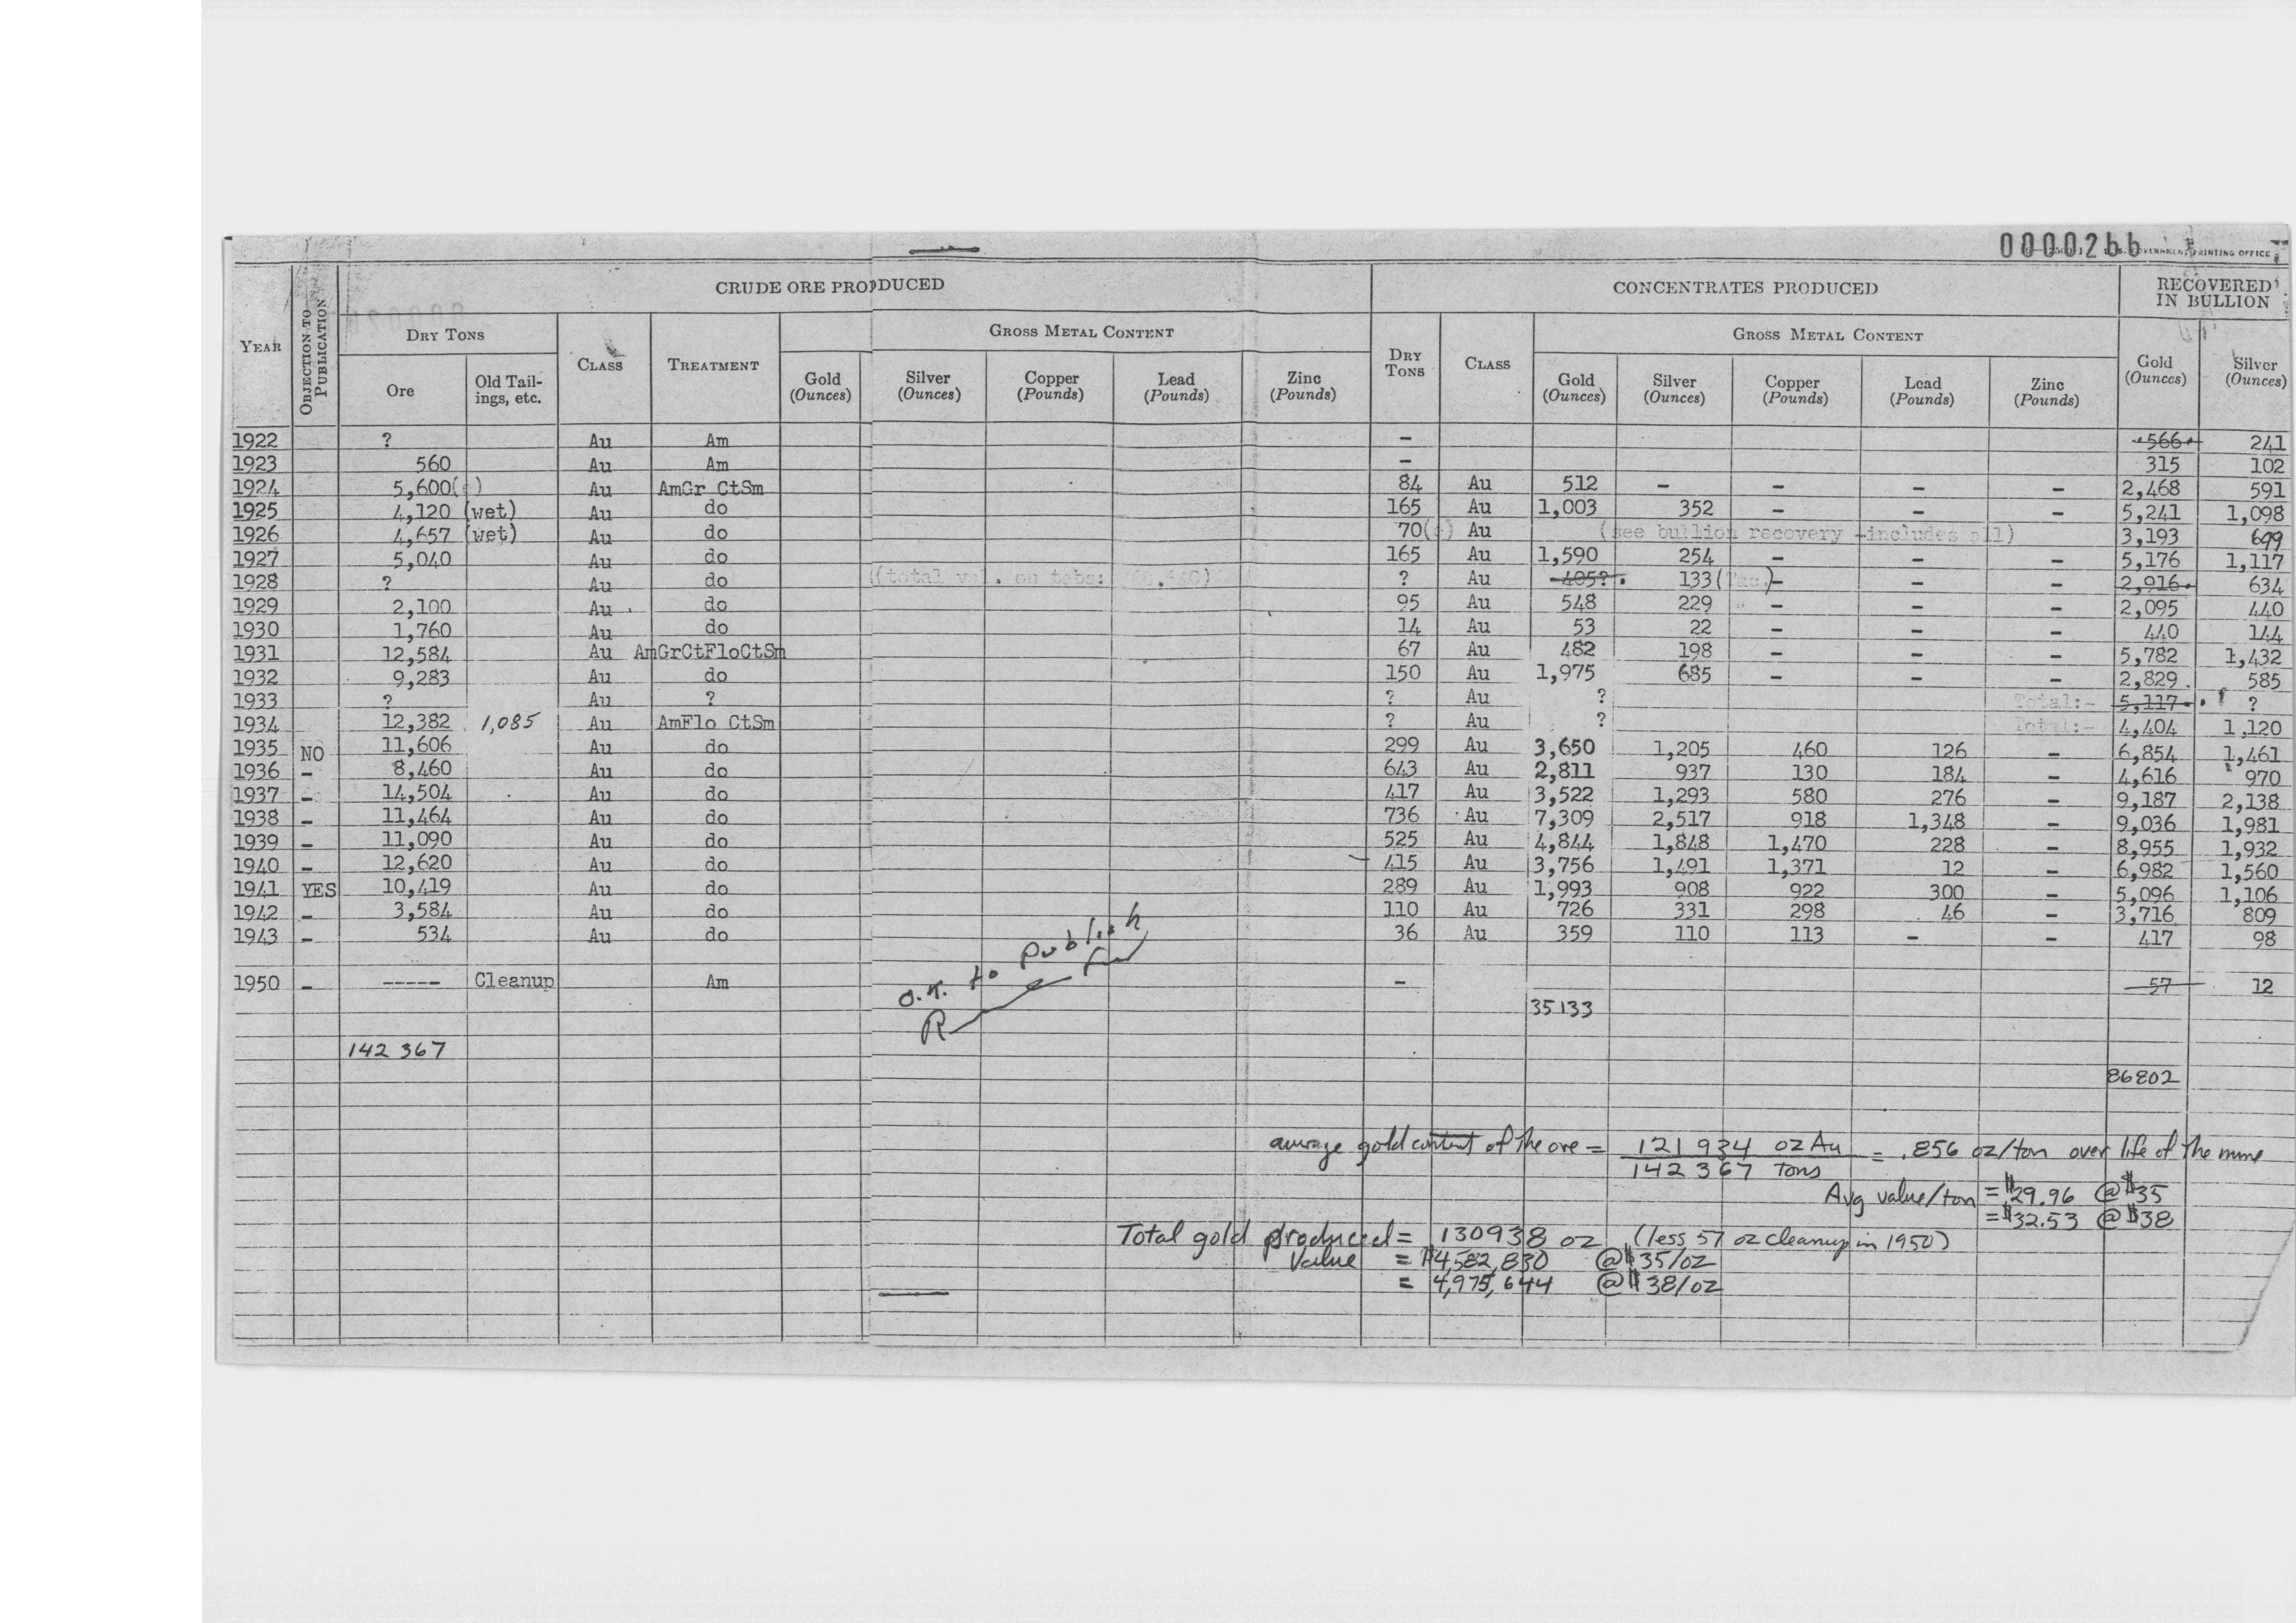 0000266
GOVERNMENT PRINTING OFFICE
CRUDE ORE PRODUCED CONCENTRATES PRODUCED RECOVERED IN BULLION
YEAR OBJECTION TO PUBLICATION DRY TONS CLASS TREATMENT GROSS METAL CONTENT DRY TONS CLASS GROSS METAL CONTENT Gold (Ounces) Silver (Ounces)
Ore Old Tailings, etc. Gold (Ounces) Silver (Ounces) Copper (Pounds) Lead (Pounds) Zinc (Pounds) Gold (Ounces) Silver (Ounces) Copper (Pounds) Lead (Pounds) Zinc (Pounds)
1922 ? Au Am – 566 241
1923 560 Au Am – 315 102
1924 5,600( ) Au AmGr CtSm 84 Au 512 – – – – 2,468 591
1925 4,120 (wet) Au do 165 Au 1,003 352 – – – 5,241 1,098
1926 4,657 (wet) Au do 70( ) Au (see bullion recovery –includes all) 3,193 699
1927 5,040 Au do 165 Au 1,590 254 – – – 5,176 1,117
1928 ? Au do (total val. on tabs: ) ? Au 405? 133 – – – 2,916 634
1929 2,100 Au do 95 Au 548 229 – – – 2,095 440
1930 1,760 Au do 14 Au 53 22 – – – 440 144
1931 12,584 Au AmGrCtFloCtSm 67 Au 482 198 – – – 5,782 1,432
1932 9,283 Au do 150 Au 1,975 685 – – – 2,829 585
1933 ? Au ? ? Au ? Total:- 5,117 ?
1934 12,382 1,085 Au AmFlo CtSm ? Au ? Total:- 4,404 1,120
1935 NO 11,606 Au do 299 Au 3,650 1,205 460 126 – 6,854 1,461
1936 – 8,460 Au do 643 Au 2,811 937 130 184 – 4,616 970
1937 – 14,504 Au do 417 Au 3,522 1,293 580 276 – 9,187 2,138
1938 – 11,464 Au do 736 Au 7,309 2,517 918 1,348 – 9,036 1,981
1939 – 11,090 Au do 525 Au 4,844 1,848 1,470 228 – 8,955 1,932
1940 – 12,620 Au do 415 Au 3,756 1,491 1,371 12 – 6,982 1,560
1941 YES 10,419 Au do 289 Au 1,993 908 922 300 – 5,096 1,106
1942 – 3,584 Au do 110 Au 726 331 298 46 – 3,716 809
1943 – 534 Au do 36 Au 359 110 113 – – 417 98
1950 – ----- Cleanup Am – 57 12
O.K. to publish
35133
142 367
86802
average gold content of the ore = 121 934 oz Au / 142 367 Tons = .856 oz/ton over life of the mine
Avg value/ton = $29.96 @ $35
= $32.53 @ $38
Total gold produced = 130938 oz (less 57 oz cleanup in 1950)
Value = $4,582,830 @ $35/oz
= 4,975,644 @ $38/oz